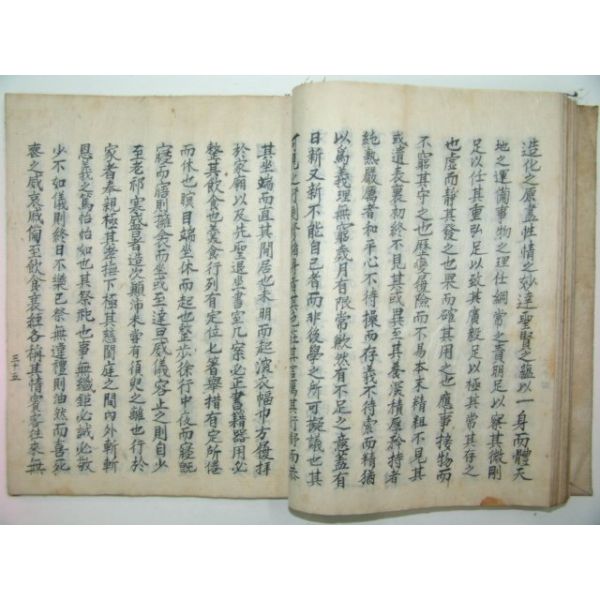 造化之原盡性情之妙達聖賢之蘊以一身而體天
地之運備事物之理任綱常之責明足以察其微剛
足以任其重弘足以致其廣毅足以極其常其存之
也虛而靜其發之也果而確其用之也應事接物而
不窮其守之也歷變履險而不易本末精粗不見其
或遺表裏初終不見其或異至其養深積厚矜持者
純熟嚴厲者和平心不待操而存義不待索而精猶
以爲義理無窮歲月有限常歉然有不足之意盖有
日新又新不能自已者而非後學之所可擬議也其
可見之行則修諸身者其色莊其言厲其行舒而恭
其坐端而直其閒居也未明而起深衣幅巾方履拜
於家廟以及先聖退坐書室几案必正書籍器用必
整其飮食也羹食行列有定位匕箸擧措有定所倦
而休也瞑目端坐休而起也整步徐行中夜而寢旣
寢而寤則擁衾而坐或至達曰威儀容止之則自少
至老祁寒盛暑造次顚沛未嘗有須臾之離也行於
家者奉親極其孝撫下極其慈閨庭之間內外斬斬
恩義之篤怡怡如也其祭祀也事無纖鉅必誠必敬
少不如儀則終日不樂已祭無違禮則油然而喜死
喪之戚哀戚備至飮食衰絰各稱其情賓客往來無
三十五